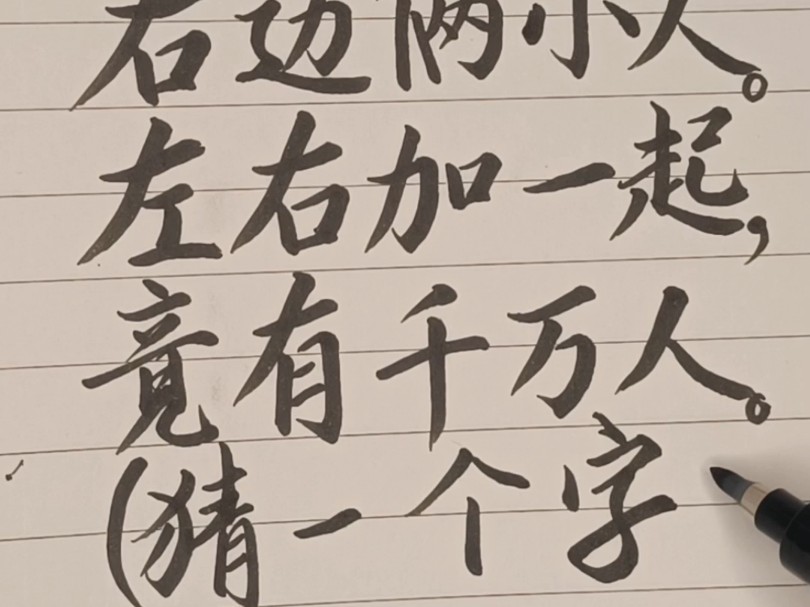 右边俩小人。
左右加一起，
竟有千万人。
(猜一个字